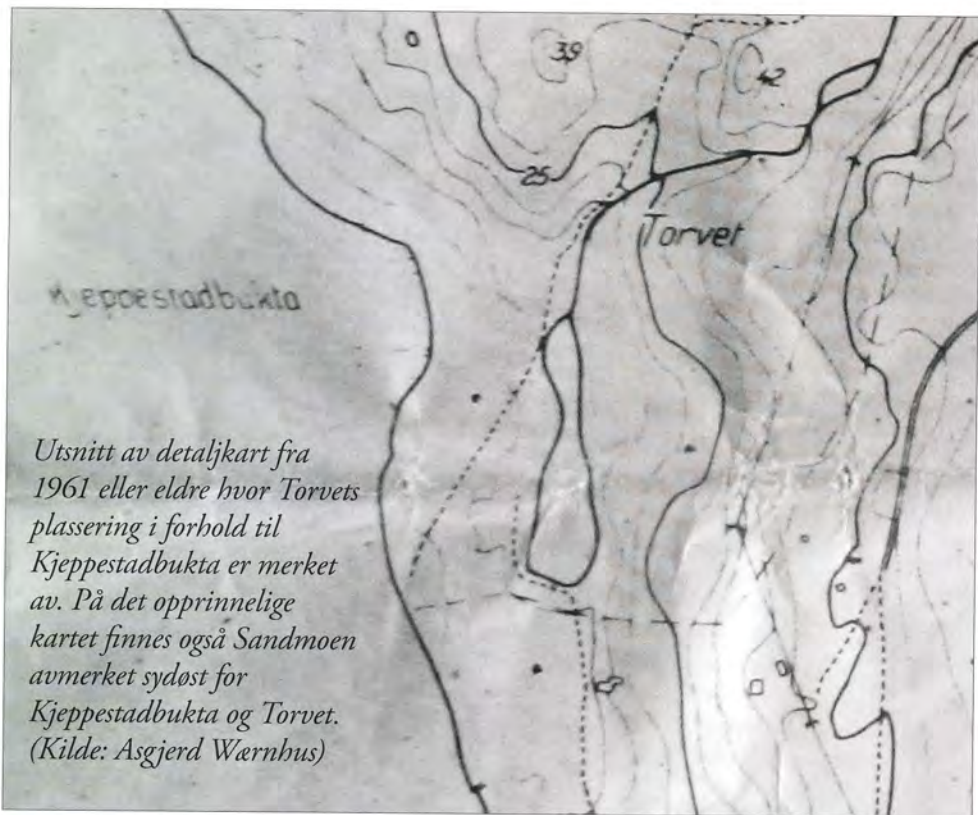 39
42
25
Torvet
Kjeppestadbukta
Utsnitt av detaljkart fra
1961 eller eldre hvor Torvets
plassering i forhold til
Kjeppestadbukta er merket
av. På det opprinnelige
kartet finnes også Sandmoen
avmerket sydøst for
Kjeppestadbukta og Torvet.
(Kilde: Asgjerd Wærnhus)